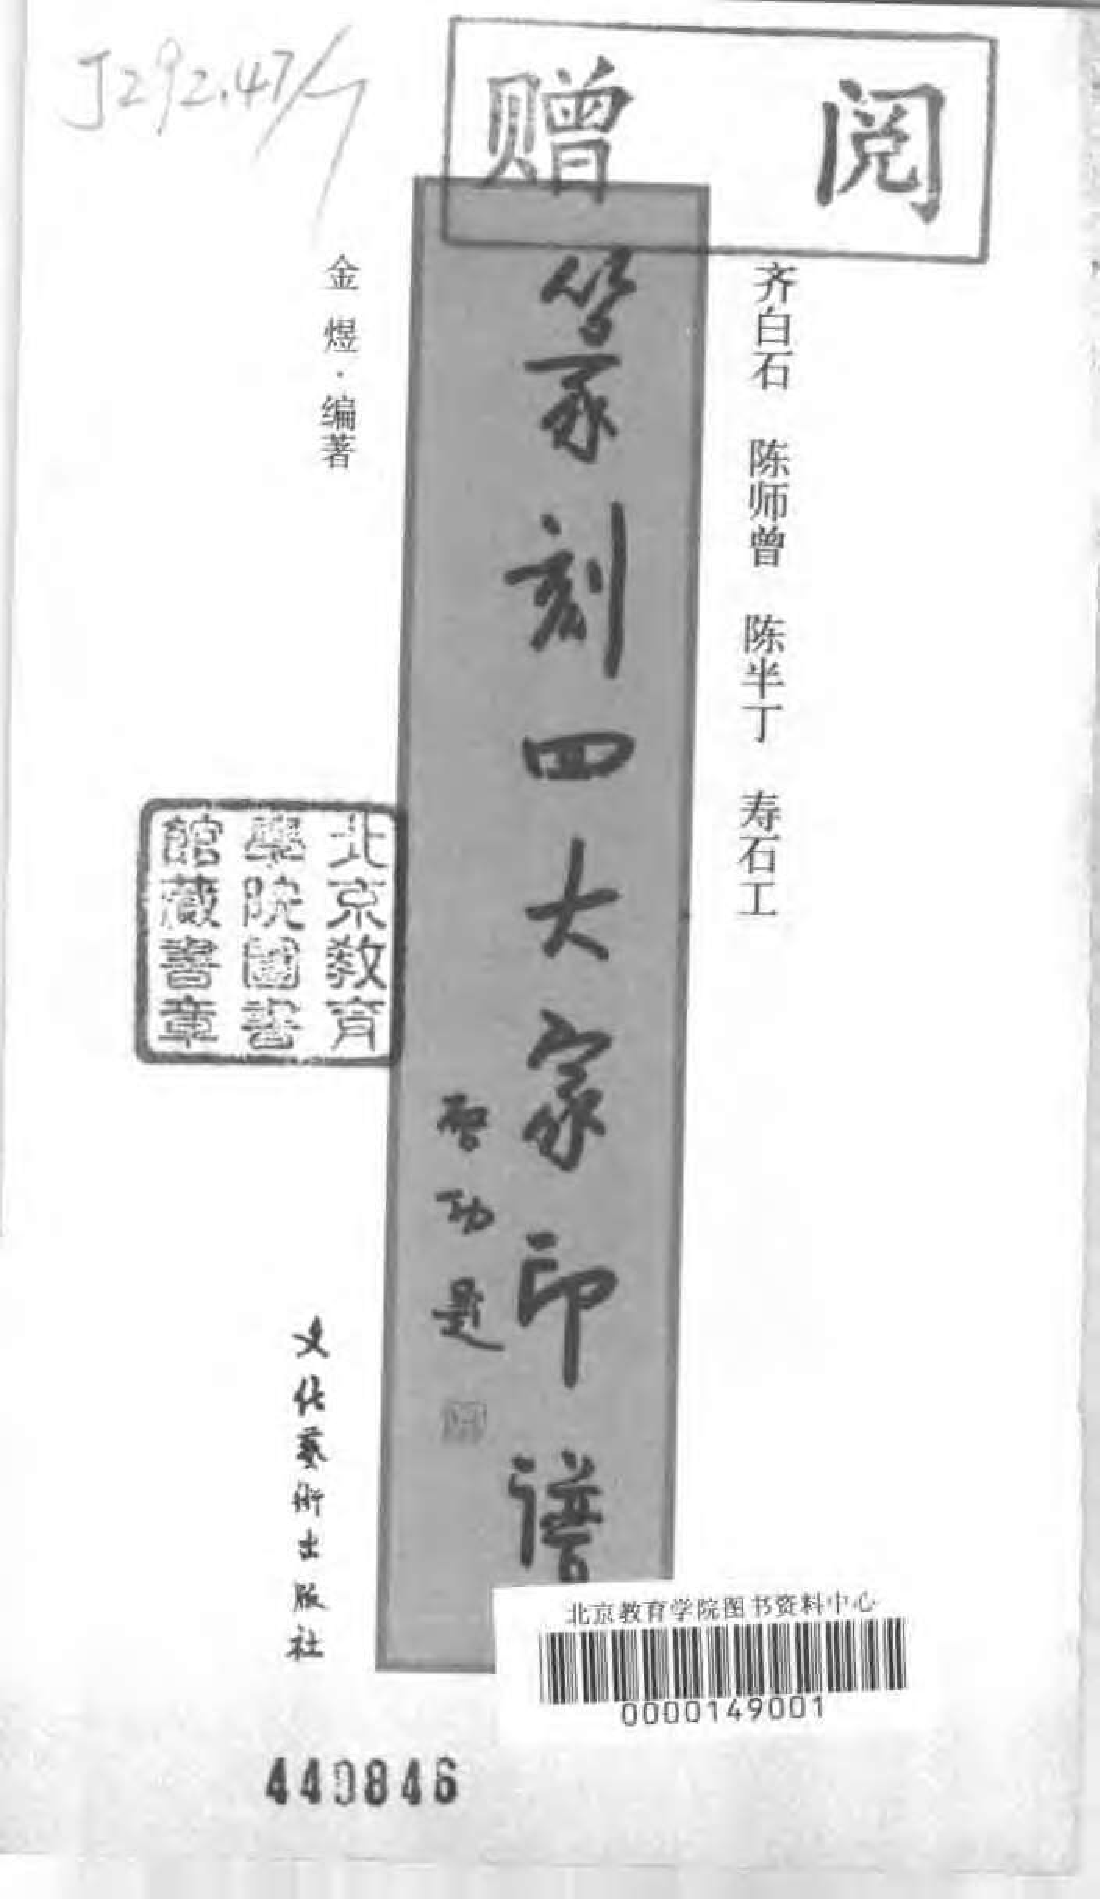 J292.47/
赠 阅
齐白石 陈师曾 陈半丁 寿石工
篆刻四大家印谱
启功题
金煜·编著
北京教育
學院圖書
館藏書章
文化藝術出版社
北京教育学院图书资料中心
0000149001
440846